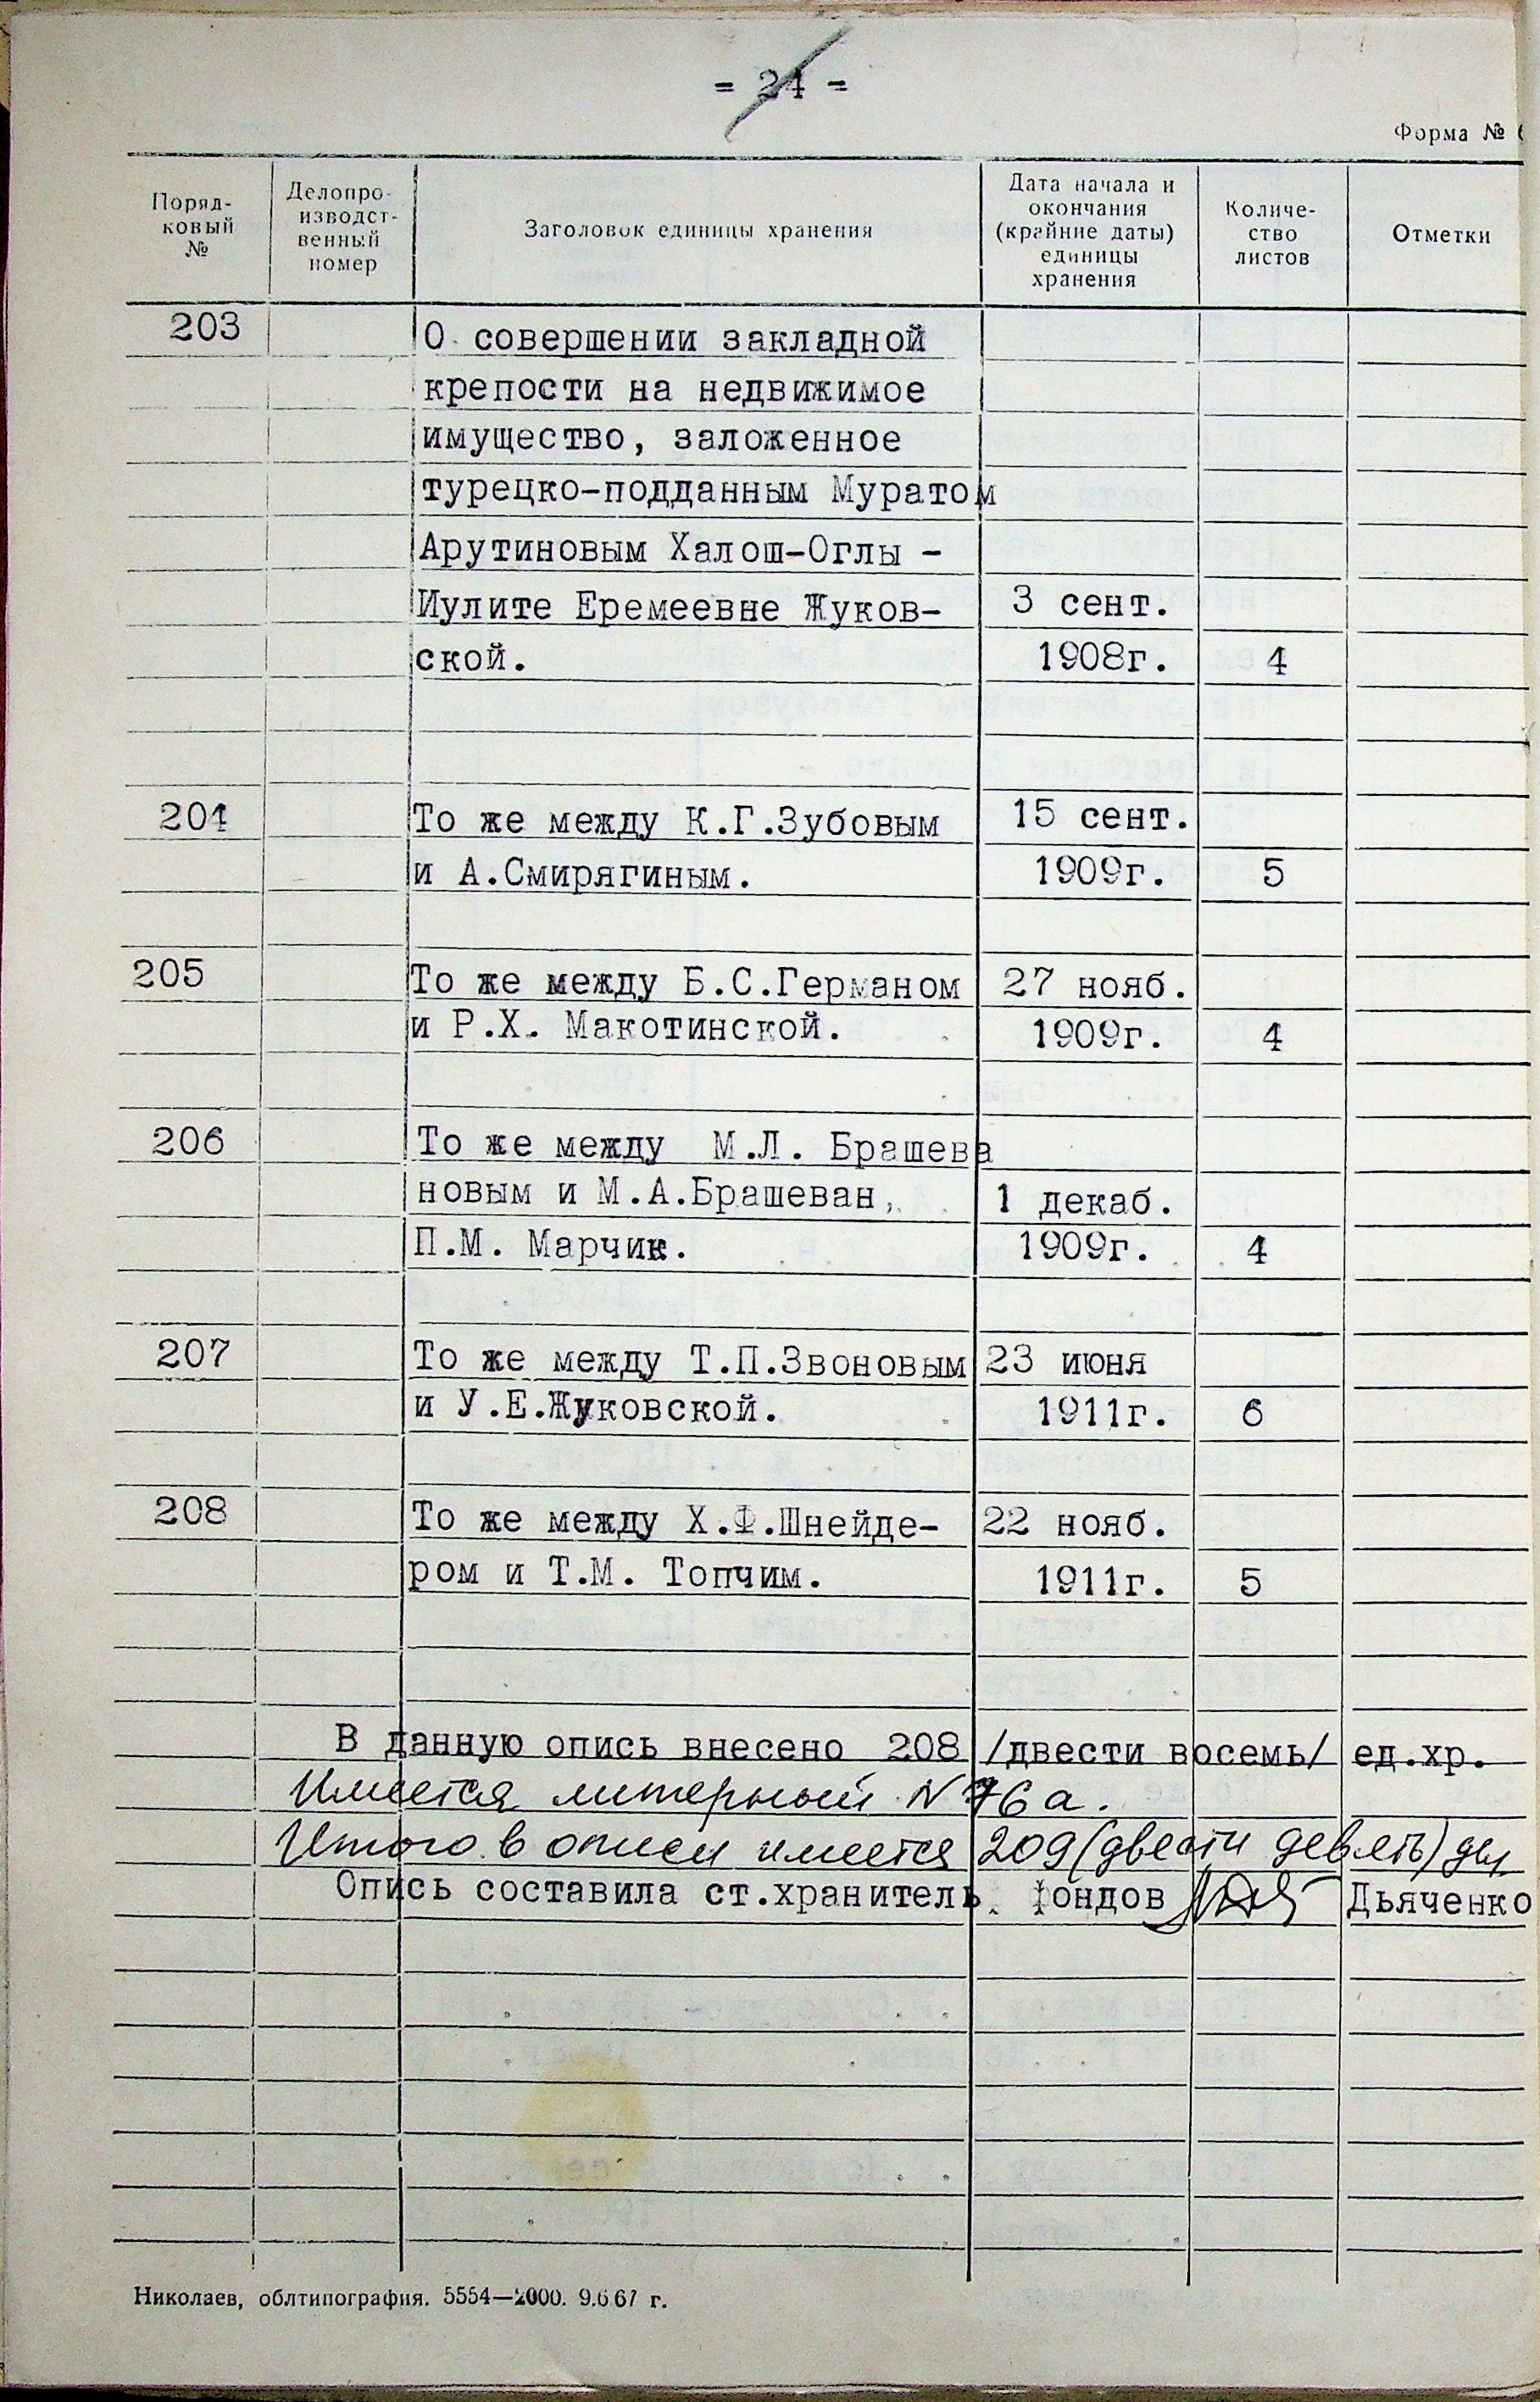 = 24 =
Форма № 6
Поряд-
ковый
№
Делопро-
изводст-
венный
номер
Заголовок единицы хранения
Дата начала и
окончания
(крайние даты)
единицы
хранения
Количе-
ство
листов
Отметки
203 О совершении закладной
крепости на недвижимое
имущество, заложенное
турецко-подданным Муратом
Арутиновым Халош-Оглы -
Иулите Еремеевне Жуков- 3 сент.
ской. 1908г. 4
204 То же между К.Г.Зубовым 15 сент.
и А.Смирягиным. 1909г. 5
205 То же между Б.С.Германом 27 нояб.
и Р.Х. Макотинской. 1909г. 4
206 То же между М.Л. Брашева
новым и М.А.Брашеван, 1 декаб.
П.М. Марчик. 1909г. 4
207 То же между Т.П.Звоновым 23 июня
и У.Е.Жуковской. 1911г. 6
208 То же между Х.Ф.Шнейде- 22 нояб.
ром и Т.М. Топчим. 1911г. 5
В данную опись внесено 208 /двести восемь/ ед.хр.
Имеется литерный N 76а.
Итого в описи имеется 209 (двести девять)
Опись составила ст.хранитель фондов Дьяченко
Николаев, облтипография. 5554—2000. 9.6 67 г.